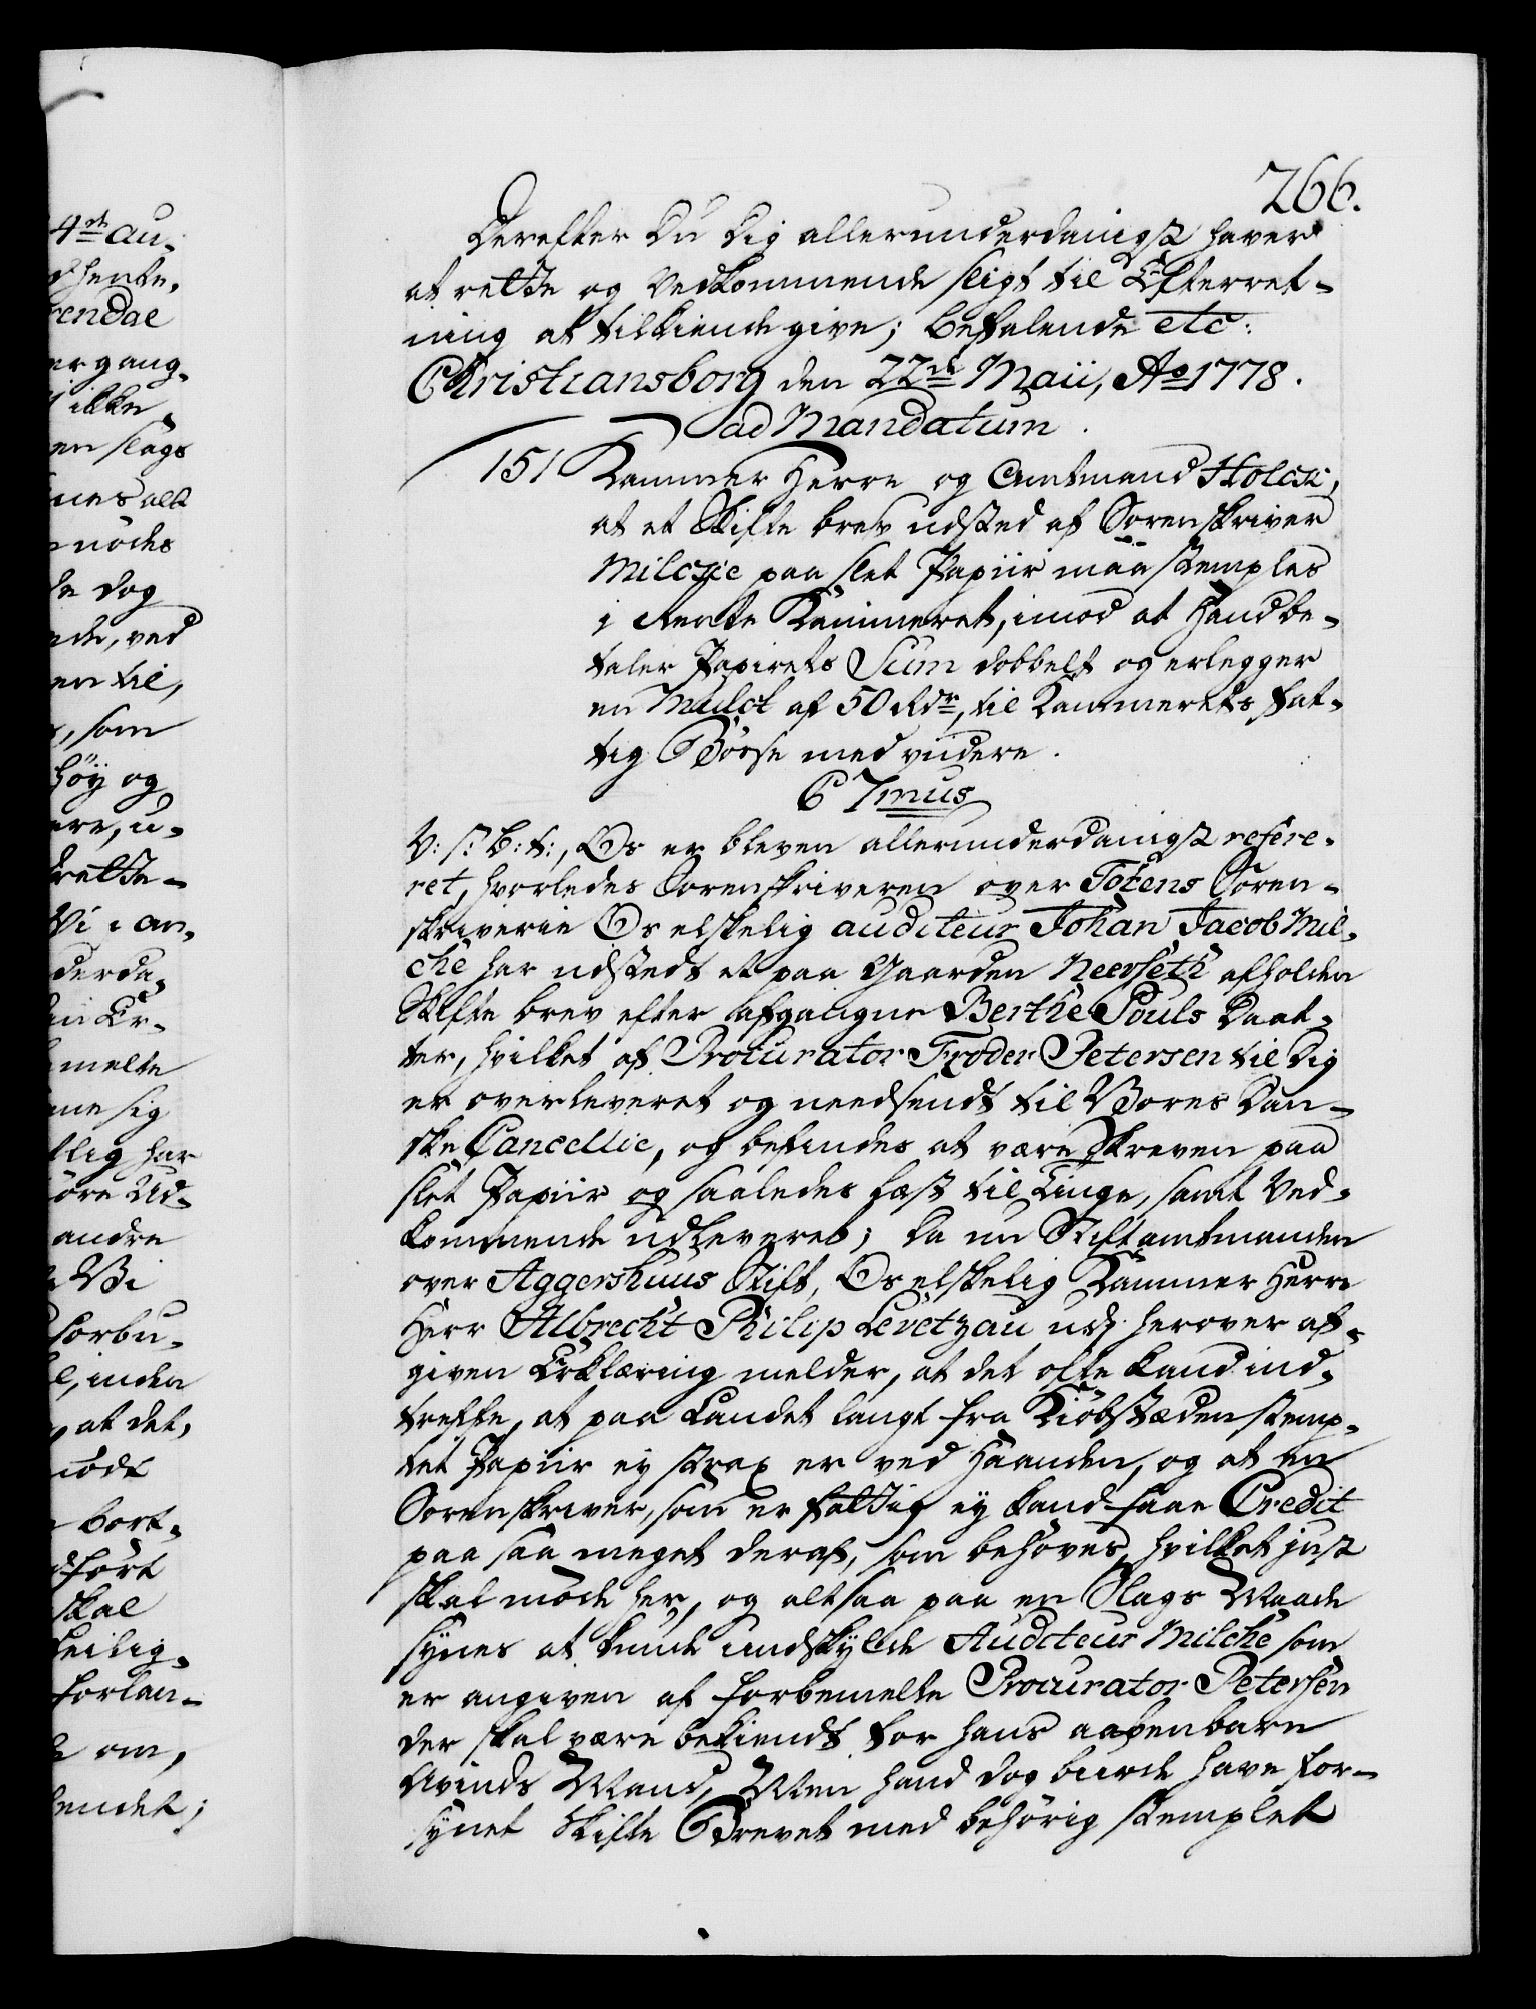 266.
Derefter Du Dig allerunderdanigst haver
at rette og Vedkommende sligt til Efterret-
ning at tilkiende give; Befalende etc:
Christiansborg den 22de Maii, Ao 1778.
ad Mandatum.
151 Kammer Herre og Amtmand Holck,
at et Skifte brev udsted af Sorenskriver
Milche paa slet Papiir maa stemples
i Rente Kammeret, imod at Hand be-
taler Papirets Sum dobbelt og erlegger
en Mulct af 50 Rdr, til Kammerets Fat-
tig Bøsse med videre.
C 7mus
V: s: B: t:, Os er bleven allerunderdanigst refere-
ret, hvorledes Sorenskriveren over Totens Soren-
skriverie Os elskelig auditeur Johan Jacob Mil-
che har udstedt et paa Gaarden Neerseth afholden
Skifte brev efter afgangne Berthe Pouls Daat-
ter, hvilket af Procurator Troder Petersen til Dig
er overleveret og needsendt til Vores Dan-
ske Cancellie, og befindes at være skreven paa
slet Papiir og saaledes læst til Tinge, samt Ved-
kommende udleveret; Da nu Stiftamtmanden
over Aggershuus Stift, Os elskelig Kammer Herre
Herr Albrecht Philip Levetzau udj herover af-
given Erklæring melder, at det ofte kand ind-
treffe, at paa Landet langt fra Kiøbstæden stemp-
let Papiir ey strax er ved Haanden, og at en
Sorenskriver, som er fattig ey kand faae Credit
paa saa meget deraf, som behøves, hvilket just
skal møde her, og altsaa paa en Slags Maade
synes at kunde undskylde Auditeur Milche som
er angiven af forbemelte Procurator Petersen
der skal være bekiendt for hans aabenbare
Avinds Mand, Men hand dog burde have for-
synet Skifte Brevet med behørig stemplet